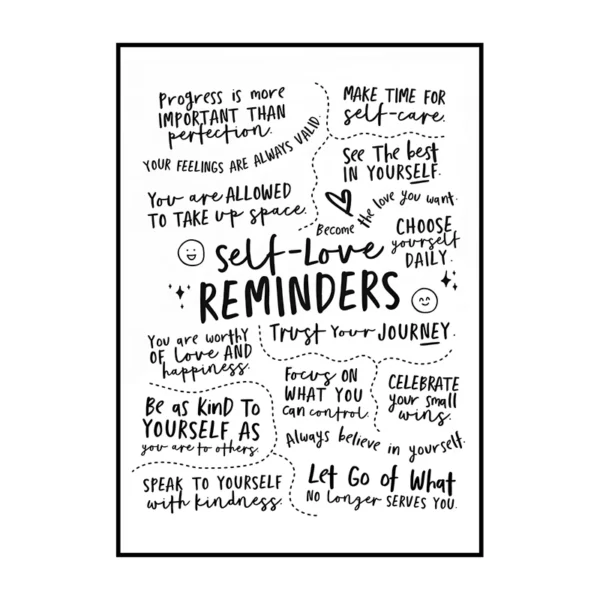 Progress is more
IMPORTANT THAN
perfection.
MAKE TIME FOR
self-care.
YOUR FEELINGS ARE ALWAYS VALID.
See The best
IN YOURSELF.
You are ALLOWED
TO TAKE up space.
Become the love you want.
CHOOSE
yourself
DAILY.
Self-Love
REMINDERS
You are worthy
OF Love AND
happiness.
Trust Your JOURNEY.
Focus ON
WHAT YOU
can control.
CELEBRATE
your small
wins.
Be as KinD To
YOURSELF AS
you are to others.
Always believe in yourself.
SPEAK TO YOURSELF
with kindness.
Let Go of What
NO Longer SERVES YOU.